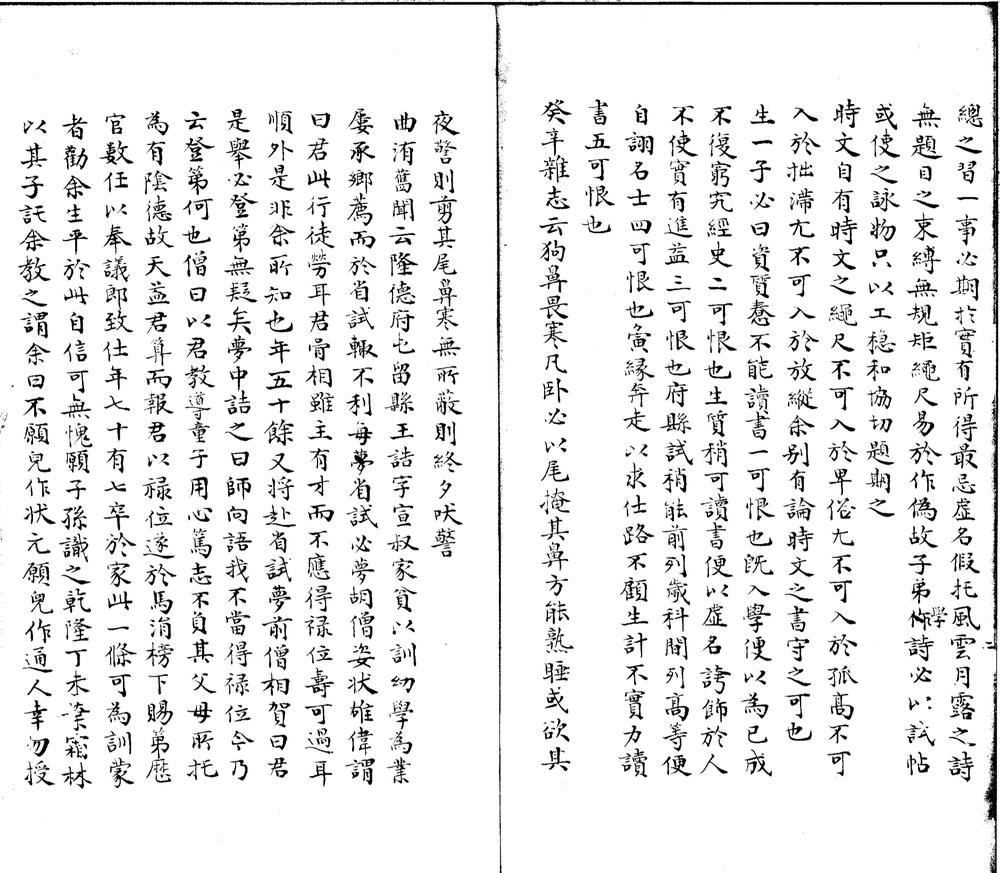 總之習一事必期於實有所得最忌虛名假托風雲月露之詩
無題目之束縛無規矩繩尺易於作偽故子弟學詩必以試帖
或使之詠物只以工穩和協切題期之
時文自有時文之繩尺不可入於卑俗尤不可入於孤高不可
入於拙滯尤不可入於放縱余别有論時文之書守之可也
生一子必曰資質惷不能讀書一可恨也既入學便以為已成
不復窮究經史二可恨也生質稍可讀書便以虛名誇飾於人
不使實有進益三可恨也府縣試稍能前列歲科間列高等便
自詡名士四可恨也夤緣奔走以求仕路不顧生計不實力讀
書五可恨也
癸辛雜志云狗鼻畏寒凡卧必以尾掩其鼻方能熟睡或欲其
夜警則剪其尾鼻寒無所蔽則終夕吠警
曲洧舊聞云隆德府屯留縣王誥字宣叔家貧以訓幼學為業
屢承鄉薦而於省試輙不利每夢省試必夢胡僧姿狀雄偉謂
曰君此行徒勞耳君骨相雖主有才而不應得禄位壽可過耳
順外是非余所知也年五十餘又将赴省試夢前僧相賀曰君
是舉必登第無疑矣夢中詰之曰師向語我不當得禄位今乃
云登第何也僧曰以君教導童子用心篤志不負其父母所托
為有陰德故天益君算而報君以禄位遂於馬涓榜下賜第歷
官數任以奉議郎致仕年七十有七卒於家此一條可為訓蒙
者勸余生平於此自信可無愧願子孫識之乾隆丁未葉霜林
以其子託余教之謂余曰不願兒作状元願兒作通人幸勿授